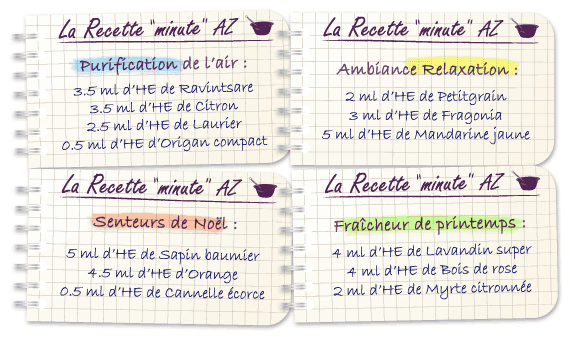 La Recette "minute" AZ
Purification de l'air :
3.5 ml d'HE de Ravintsare
3.5 ml d'HE de Citron
2.5 ml d'HE de Laurier
0.5 ml d'HE d'Origan compact
La Recette "minute" AZ
Ambiance Relaxation :
2 ml d'HE de Petitgrain
3 ml d'HE de Fragonia
5 ml d'HE de Mandarine jaune
La Recette "minute" AZ
Senteurs de Noël :
5 ml d'HE de Sapin baumier
4.5 ml d'HE d'Orange
0.5 ml d'HE de Cannelle écorce
La Recette "minute" AZ
Fraîcheur de printemps :
4 ml d'HE de Lavandin super
4 ml d'HE de Bois de rose
2 ml d'HE de Myrte citronnée